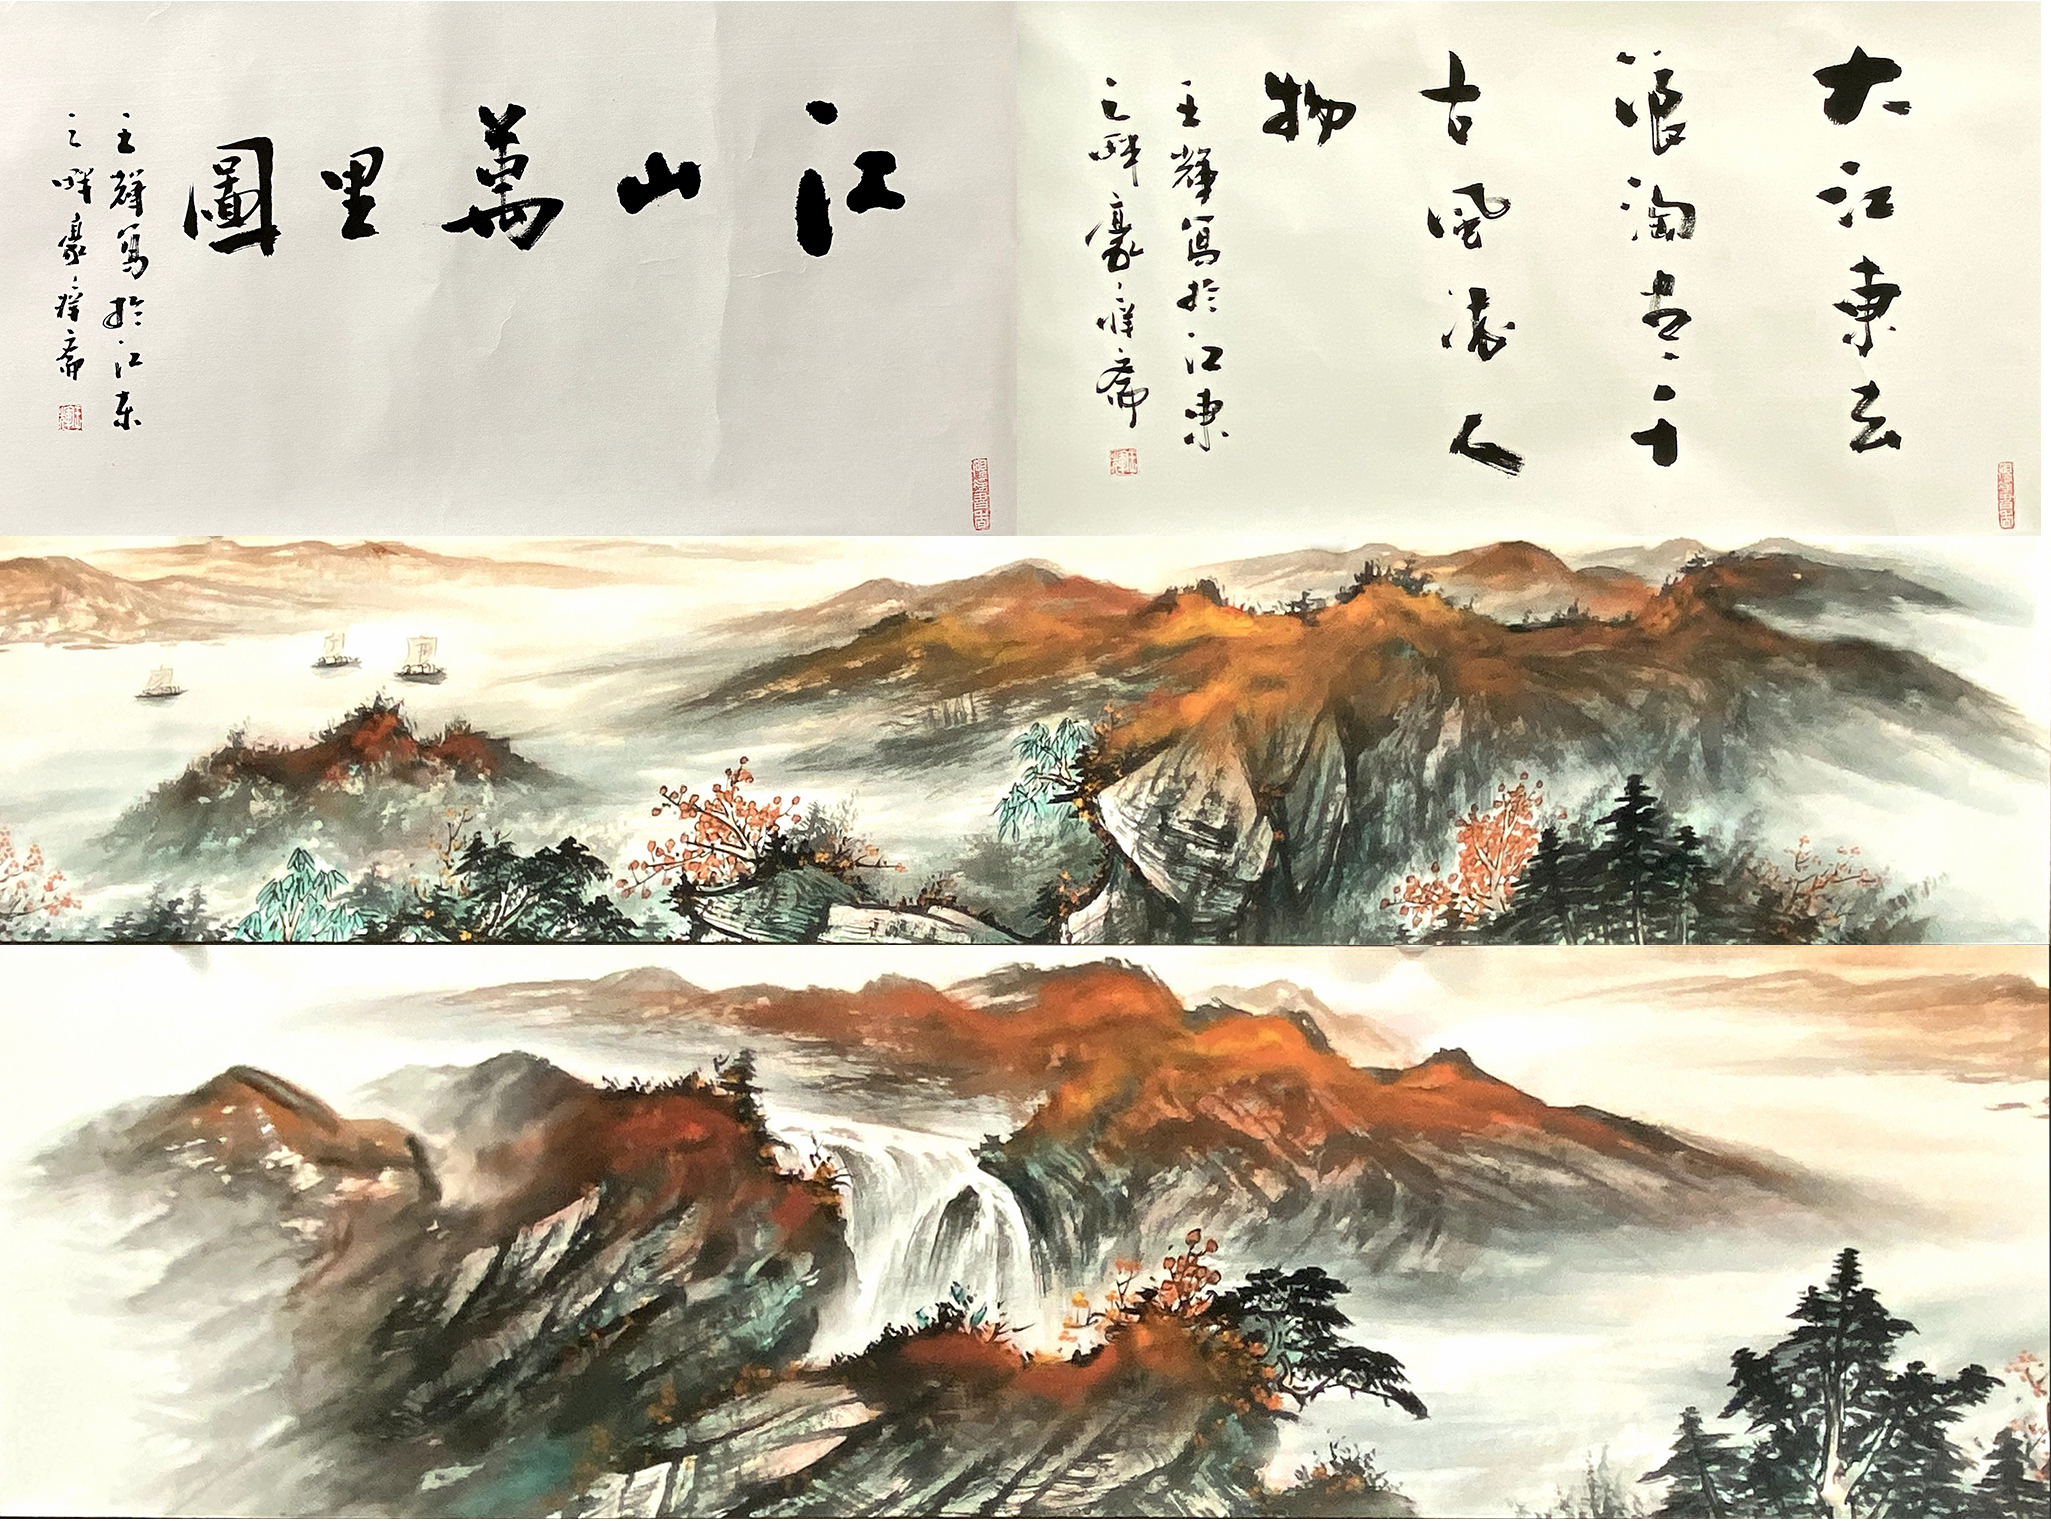 江山萬里圖
王輝寫於江东
之畔豪祥齋
大江東去
浪淘尽千
古風流人
物
王輝寫於江東
之畔豪祥齋